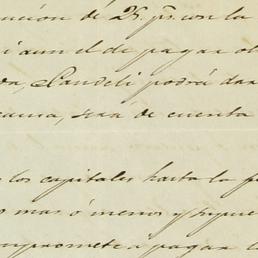 ución de 25 ps. con la
i aun el de pagar ob
Landeli podrá dar
causa, será de cuenta
los capitales hasta la
mas ó menos y
compromete á pagar